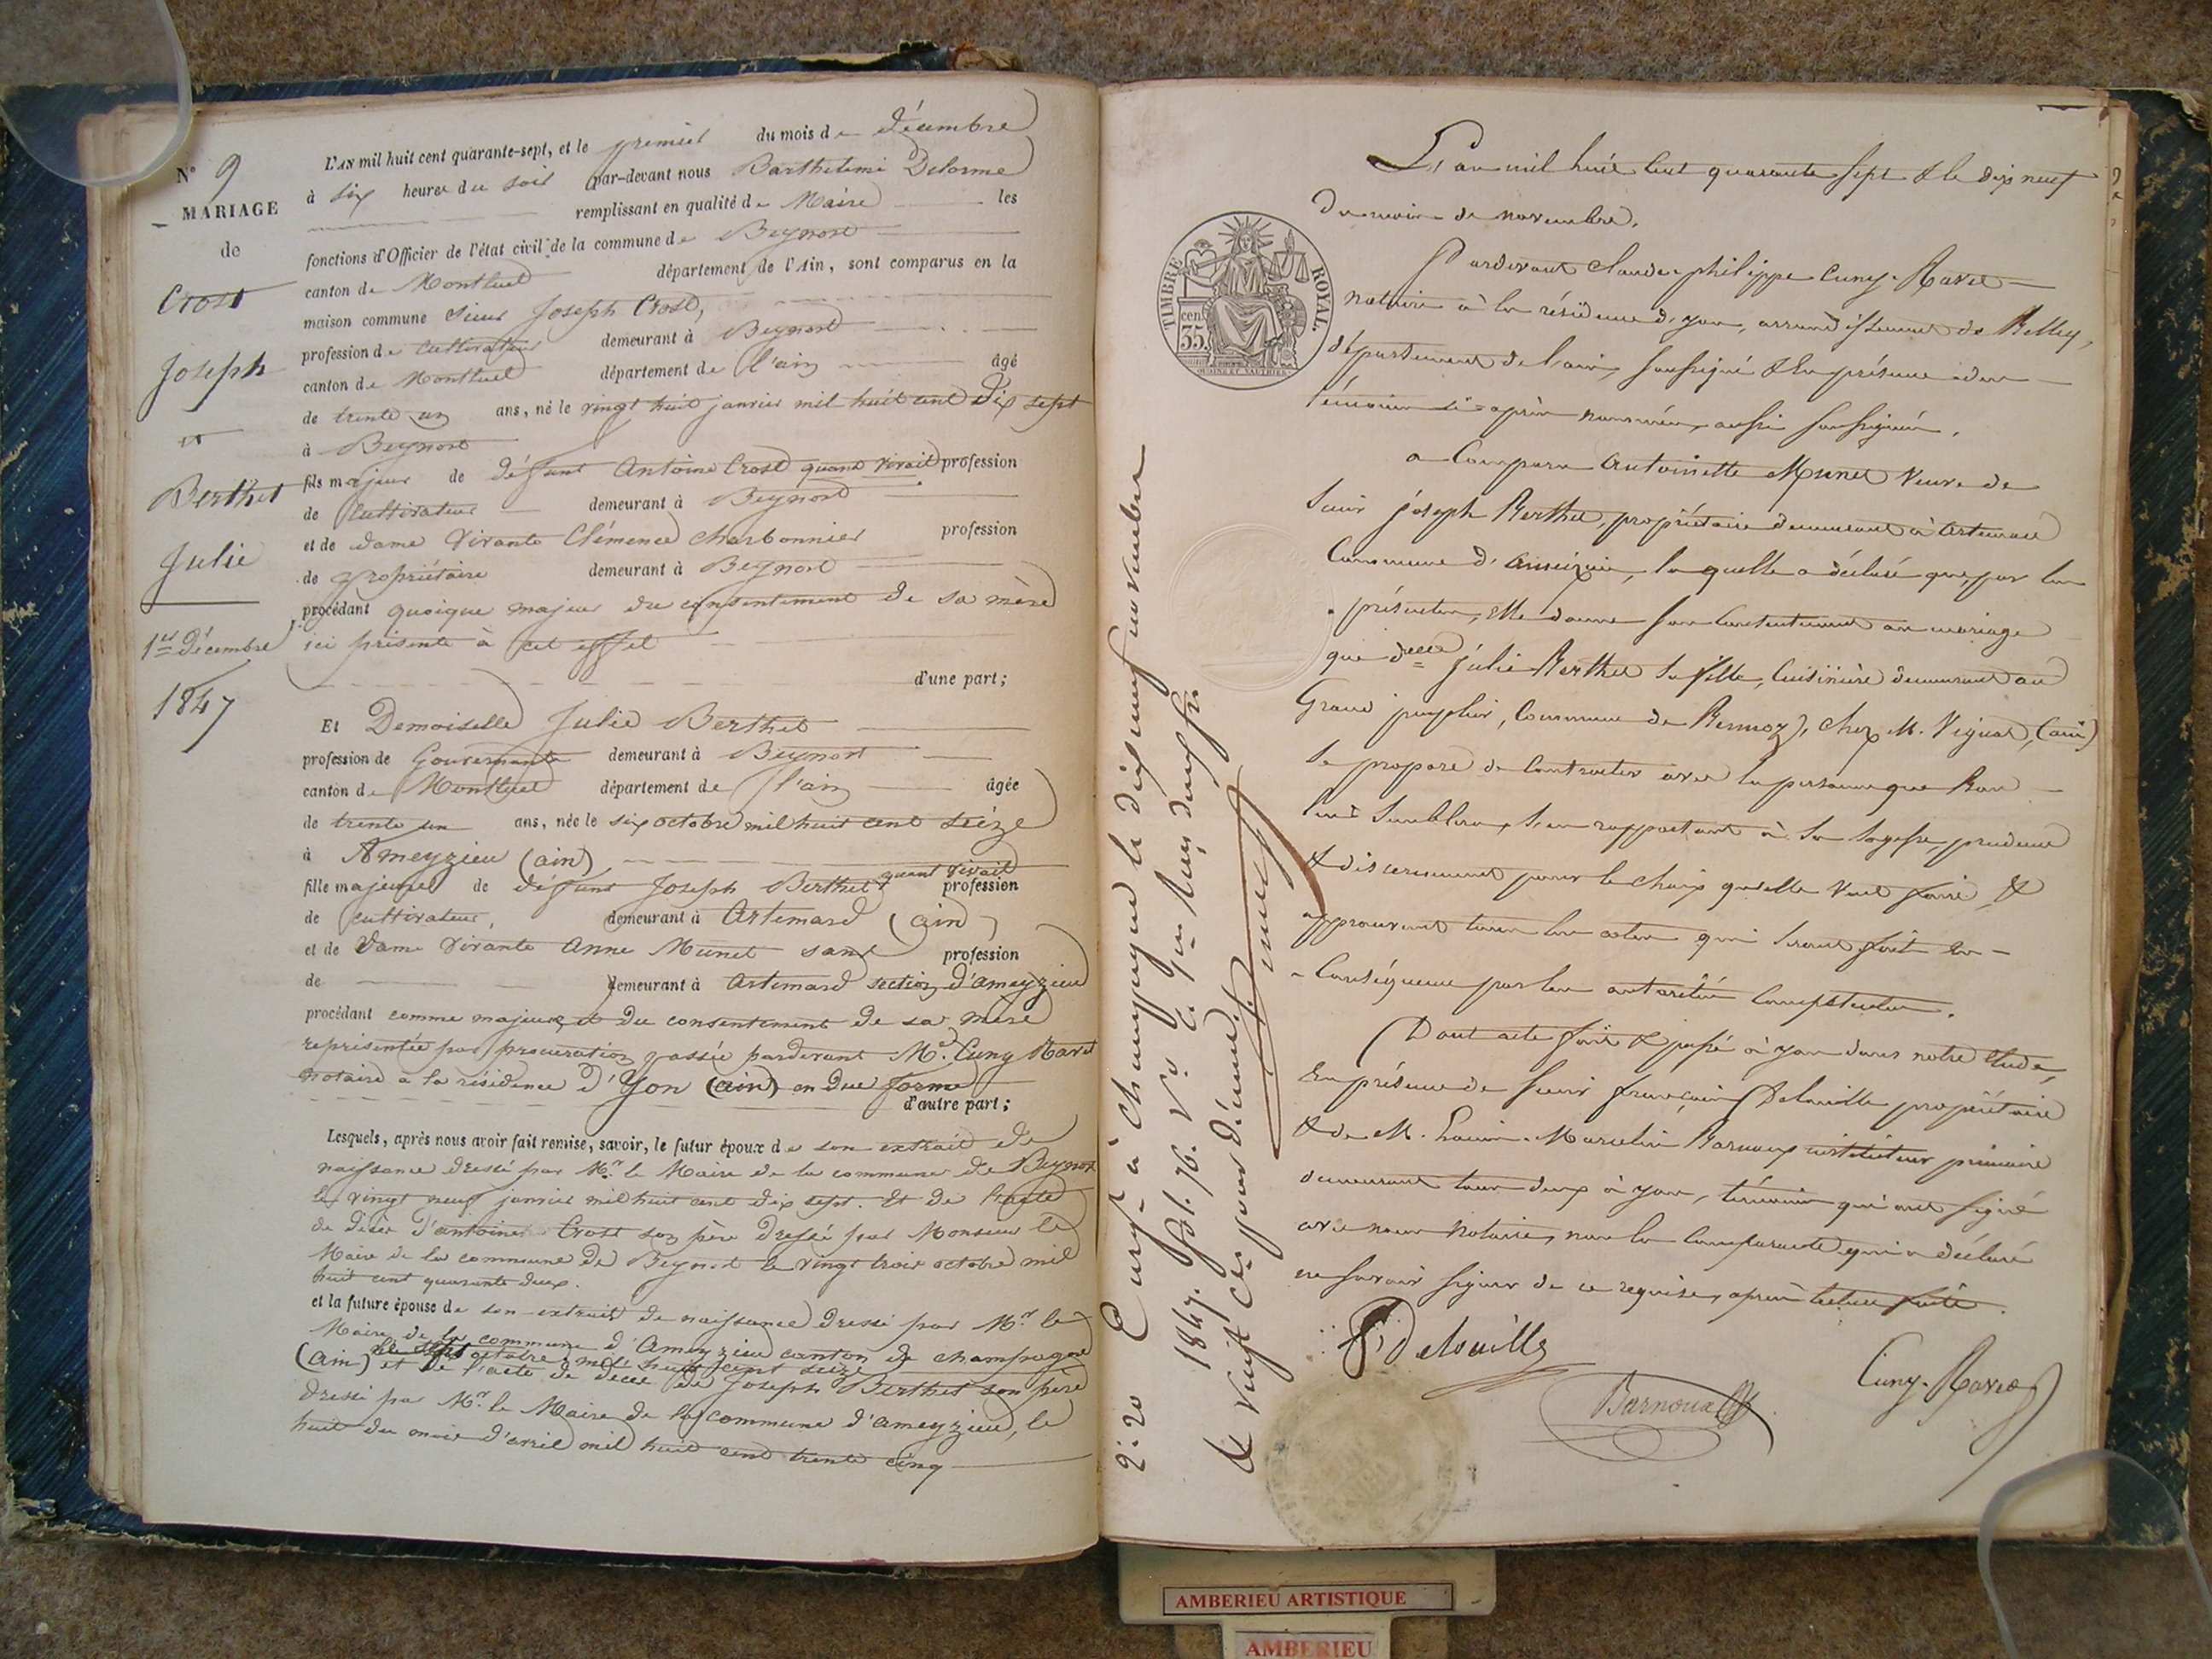 N° 9
MARIAGE
de
Crost
Joseph
et
Berthet
Julie
1er Décembre
1847
L'AN mil huit cent quarante-sept, et le premier du mois de décembre
à six heures du soir par-devant nous Barthélemi Delorme
remplissant en qualité de Maire les
fonctions d'Officier de l'état civil de la commune de Beynost
canton de Montluel département de l'Ain, sont comparus en la
maison commune Sieur Joseph Crost,
profession de cultivateur demeurant à Beynost
canton de Montluel département de l'ain âgé
de trente un ans, né le vingt huit janvier mil huit cent dix sept
à Beynost
fils majeur de défunt Antoine Crost quand vivait profession
de cultivateur demeurant à Beynost
et de dame vivante Clémence Charbonnier profession
de propriétaire demeurant à Beynost
procédant quoique majeur du consentement de sa mère
ici présente à cet effet
d'une part;
Et Demoiselle Julie Berthet
profession de Gouvernante demeurant à Beynost
canton de Montluel département de l'ain âgée
de trente un ans, née le six octobre mil huit cent seize
à Ameyzieu (ain)
fille majeure de défunt Joseph Berthet quant vivait profession
de cultivateur, demeurant à Artemard (ain)
et de Dame vivante Anne Munet sans profession
de demeurant à Artemard section d'ameyzieu
procédant comme majeure et du consentement de sa mère
représentée par procuration passée pardevant Me. Cuny Ravet
notaire a la résidence d'Yon (ain) en due forme
d'autre part;
Lesquels, après nous avoir fait remise, savoir, le futur époux de son extrait de
naissance dressé par Mr. le Maire de la commune de Beynost
le vingt neuf janvier mil huit cent dix sept. Et de l'acte
de décès d'antoine Crost son père dressé par Monsieur le
Maire de la commune de Beynost le vingt trois octobre mil
huit cent quarante deux.
et la future épouse de son extrait de naissance dressé par Mr. le
Maire de la commune d'Ameyzieu canton de champagne
le sept octobre mil huit cent seize
(Ain) et de l'acte de décès de Joseph Berthet son père
dressé par Mr. le Maire de la commune d'ameyzieu, le
huit du mois d'avril mil huit cent trente cinq
L'an mil huit cent quarante sept & le dix neuf
du mois de novembre.
TIMBRE ROYAL.
35 cen
Pardevant Claude philippe Cuny-Ravet
notaire à la résidence d'yon, arrondissement de Belley,
département de l'ain, soussigné & en présence des
témoins ci-après nommés, aussi soussignés.
a Comparu Antoinette Munet veuve de
Sieur joseph Berthet, propriétaire demeurant à Artemard
Commune d'ameizieu, laquelle a déclaré que, par les
présentes, elle donne son consentement au mariage
que delle Julie Berthet sa fille, Cuisinière demeurant au
Grand , Commune de , chez M. Vignat, (ain)
se propose de contracter avec la personne que bon
lui semblera, s'en rapportant à sa sagesse prudence
& discernement pour le choix qu'elle veut faire, &
approuvant tous les actes qui seront fait en
Conséquence par les autorités compétentes.
Dont acte fait & passé à yon dans notre étude,
En présence de Sieur françois Delouille propriétaire
& de M. Louis-Marcelin Barnoux instituteur primaire
demeurant tous deux à yon, témoins qui ont signé
avec nous Notaire, non la comparante qui a déclaré
ne savoir signer de ce requise, après lecture faite.
F. Delouille
Barnoux
Cuny-Ravet
2.20 Enregé à Champagne le dix neuf novembre
1847. fol. 76. Vo. C. 7. Reçu deux frs
& vingt ces pour décime.
AMBERIEU ARTISTIQUE
AMBERIEU